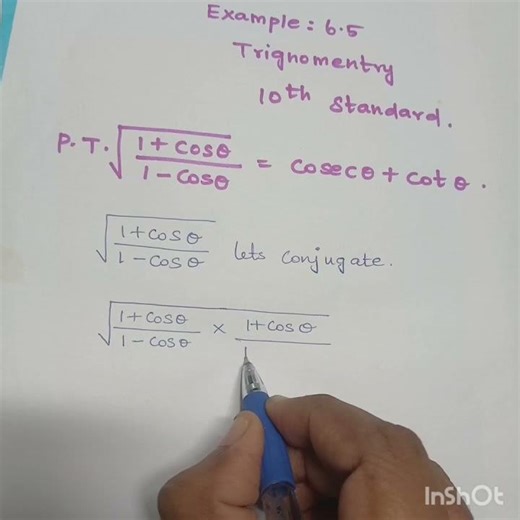 Example: 6.5
Trignomentry
10th Standard.
P.T. √(1+cosθ / 1-cosθ) = cosecθ + cotθ.
√(1+cosθ / 1-cosθ) lets conjugate.
√(1+cosθ / 1-cosθ × 1+cosθ / 1
InShOt